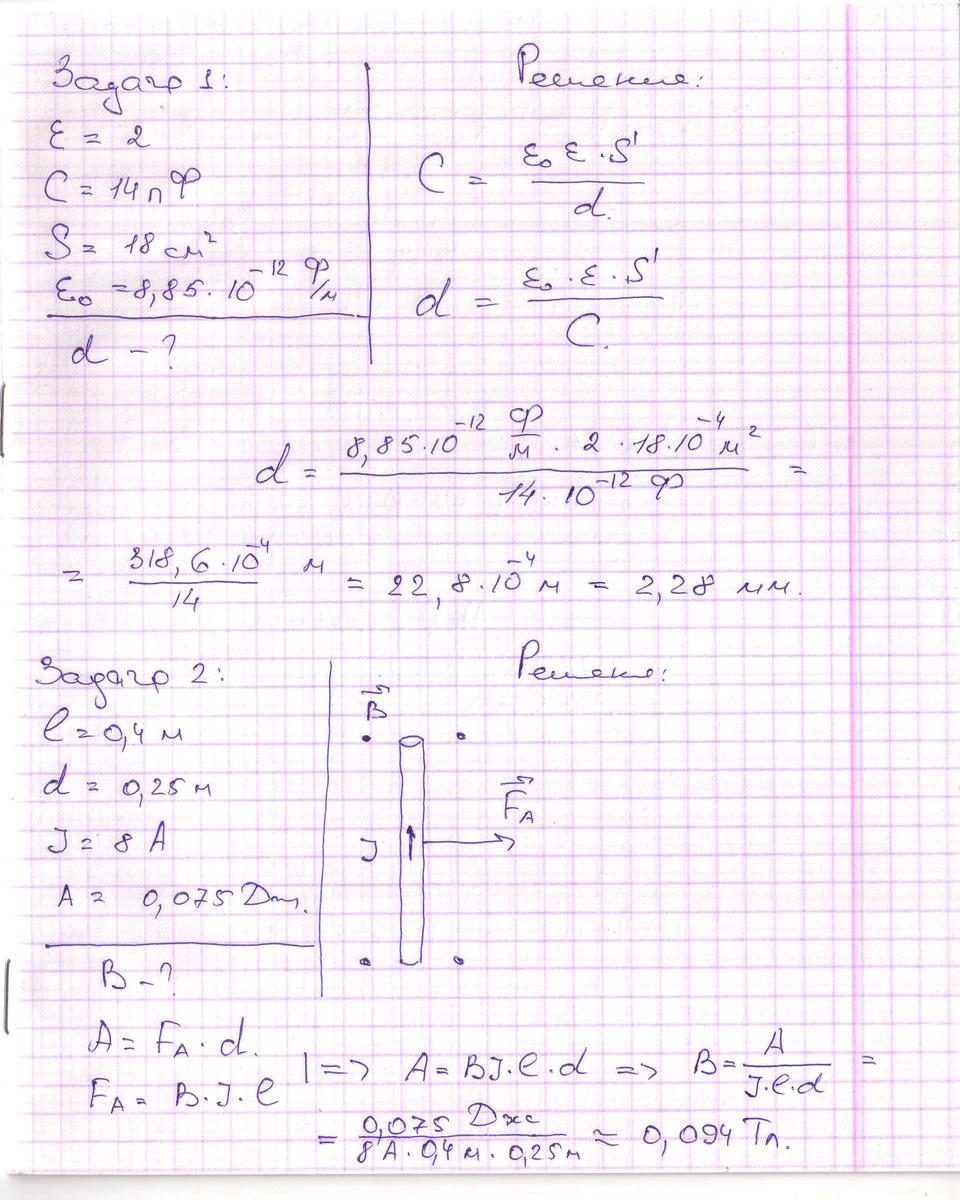 Задача 1:
ε = 2
C = 14 пФ
S = 18 см²
ε₀ = 8,85·10⁻¹² Ф/м
d - ?
Решение:
C = ε₀ ε · S / d.
d = ε₀ · ε · S / C.
d = 8,85·10⁻¹² Ф/м · 2 · 18·10⁻⁴ м² / 14·10⁻¹² Ф =
= 318,6·10⁻⁴ / 14 м = 22,8·10⁻⁴ м = 2,28 мм.
Задача 2:
l = 0,4 м
d = 0,25 м
J = 8 А
A = 0,075 Дж.
B - ?
Решение:
B
J
F_A
A = F_A · d.
F_A = B·J·l
| => A = BJ·l·d => B = A / J·l·d =
= 0,075 Дж / 8 А · 0,4 м · 0,25 м ≈ 0,094 Тл.